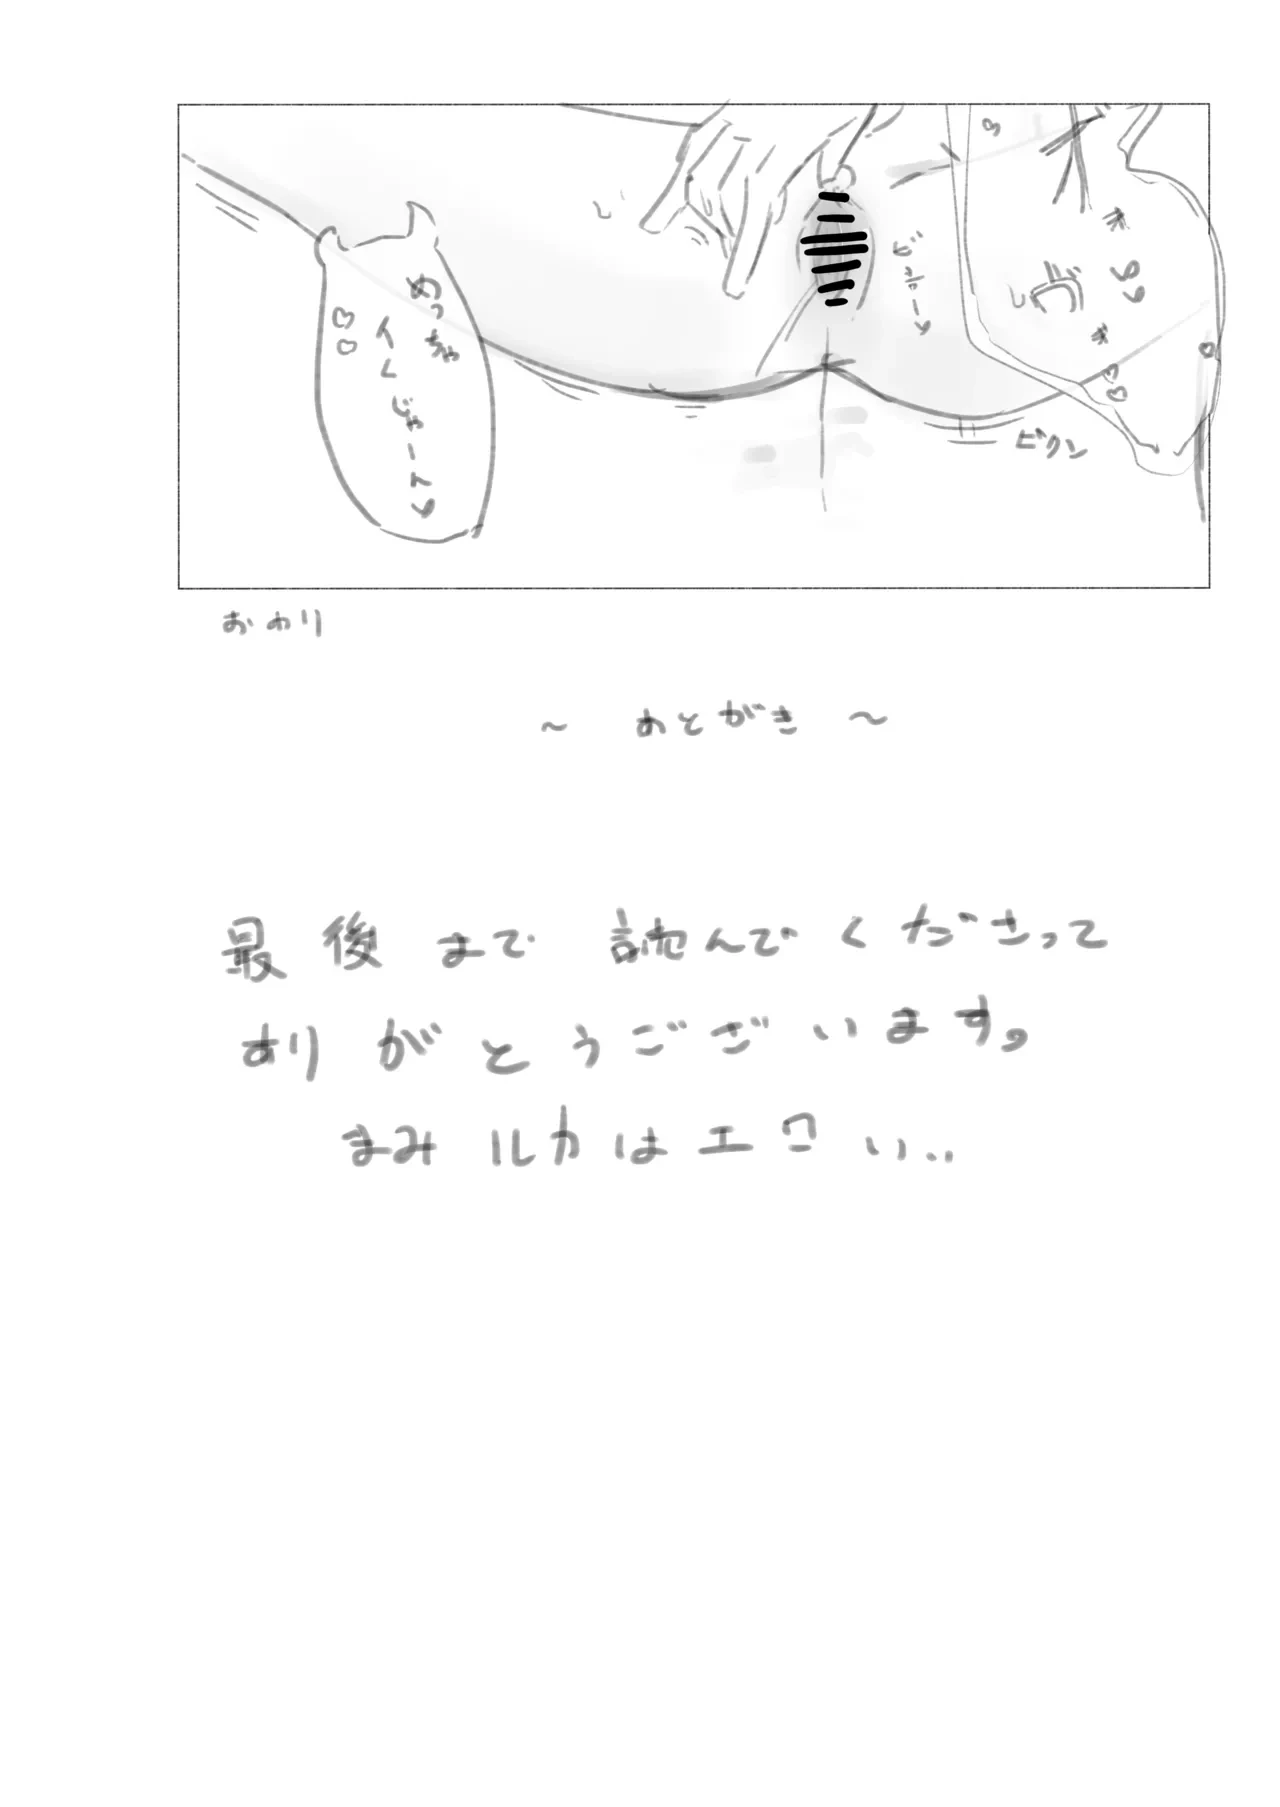 めっちゃ
イくじゃーん♥
♡♡
ビクン
おわり
～ あとがき ～
最後まで読んでくださって
ありがとうございます。
まみルカはエロい..